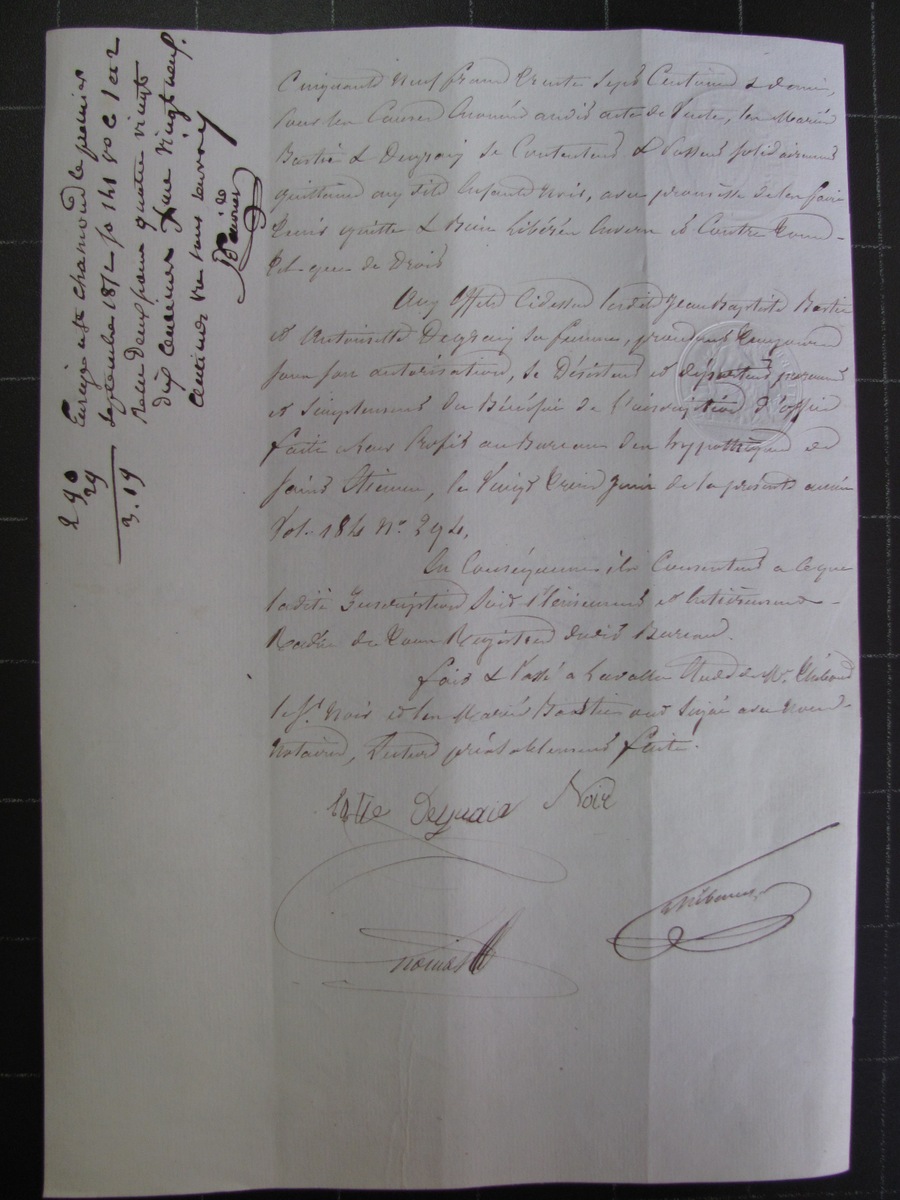 Cinquante neuf francs trente sept Centimes & demi,
pour les Causes énoncées audit acte de Vente, les Mariés
Bastie & Degraix se Contentent & Passent solidairement
quittance aux dits Enfants Noir, avec promesse de les faire
tenir quitte & Bien libérés Envers et Contre tous
Et que de Droit
Aux Effets Cidessus lesdits Jean Baptiste Bastie
et Antoinette Degraix sa femme, procédant Conjointement
sous son autorisation, se Désistent et départent purement
et Simplement du Bénéfice de l'inscription d'office
faite à leur Profit au Bureau des hypothèques de
Saint Etienne, le Vingt trois Juin de la présente année
Vol. 184 No. 394.
En Conséquence ils Consentent a ceque
ladite Inscription soit Pleinement et Entièrement
Radiée de tous Registres dudit Bureau.
fait & Passé a Lavalla Etude de Me. Thibaud
le Sr. Noir et les Mariés Bastie ont Signé avec nous
Notaires, Lecture préalablement faite.
Degraix Noir
Thibaud
Enregistré à St chamond le premier
Septembre 1812 fo 141 Vo C 1 et 2
Reçu deux francs quatre vingts
dix centimes Plus vingt neuf
centimes
2 90
29
3.19